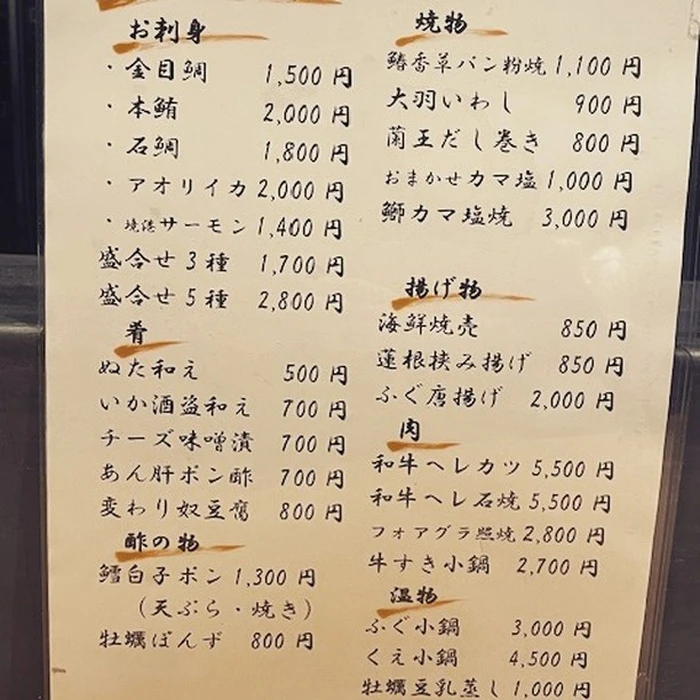 お刺身
・金目鯛 1,500円
・本鮪 2,000円
・石鯛 1,800円
・アオリイカ 2,000円
・焼津サーモン 1,400円
盛合せ3種 1,700円
盛合せ5種 2,800円
肴
ぬた和え 500円
いか酒盗和え 700円
チーズ味噌漬 700円
あん肝ポン酢 700円
変わり奴豆腐 800円
酢の物
鱈白子ポン 1,300円
(天ぷら・焼き)
牡蠣ぽんず 800円
焼物
鰆香草パン粉焼 1,100円
大羽いわし 900円
蘭王だし巻き 800円
おまかせカマ塩 1,000円
鰤カマ塩焼 3,000円
揚げ物
海鮮焼売 850円
蓮根挟み揚げ 850円
ふぐ唐揚げ 2,000円
肉
和牛ヘレカツ 5,500円
和牛ヘレ石焼 5,500円
フォアグラ照焼 2,800円
牛すき小鍋 2,700円
温物
ふぐ小鍋 3,000円
くえ小鍋 4,500円
牡蠣豆乳蒸し 1,000円